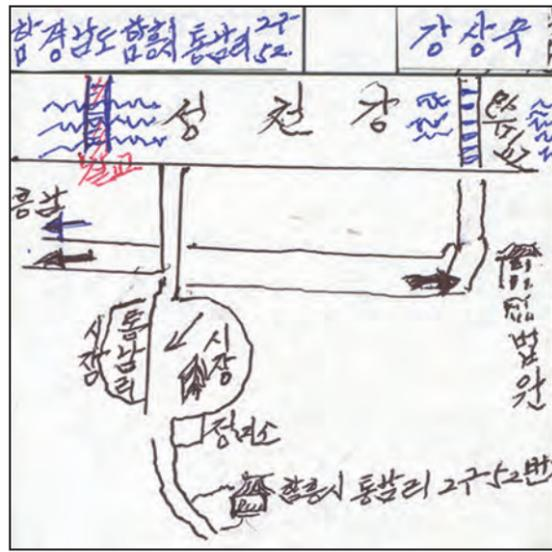 함경남도 함흥시 통남리 2구 52.
강상욱
성천강
철교
만세교
흥남
통남리
시장
시장
법원
정미소
함흥시 통남리 2구 52번